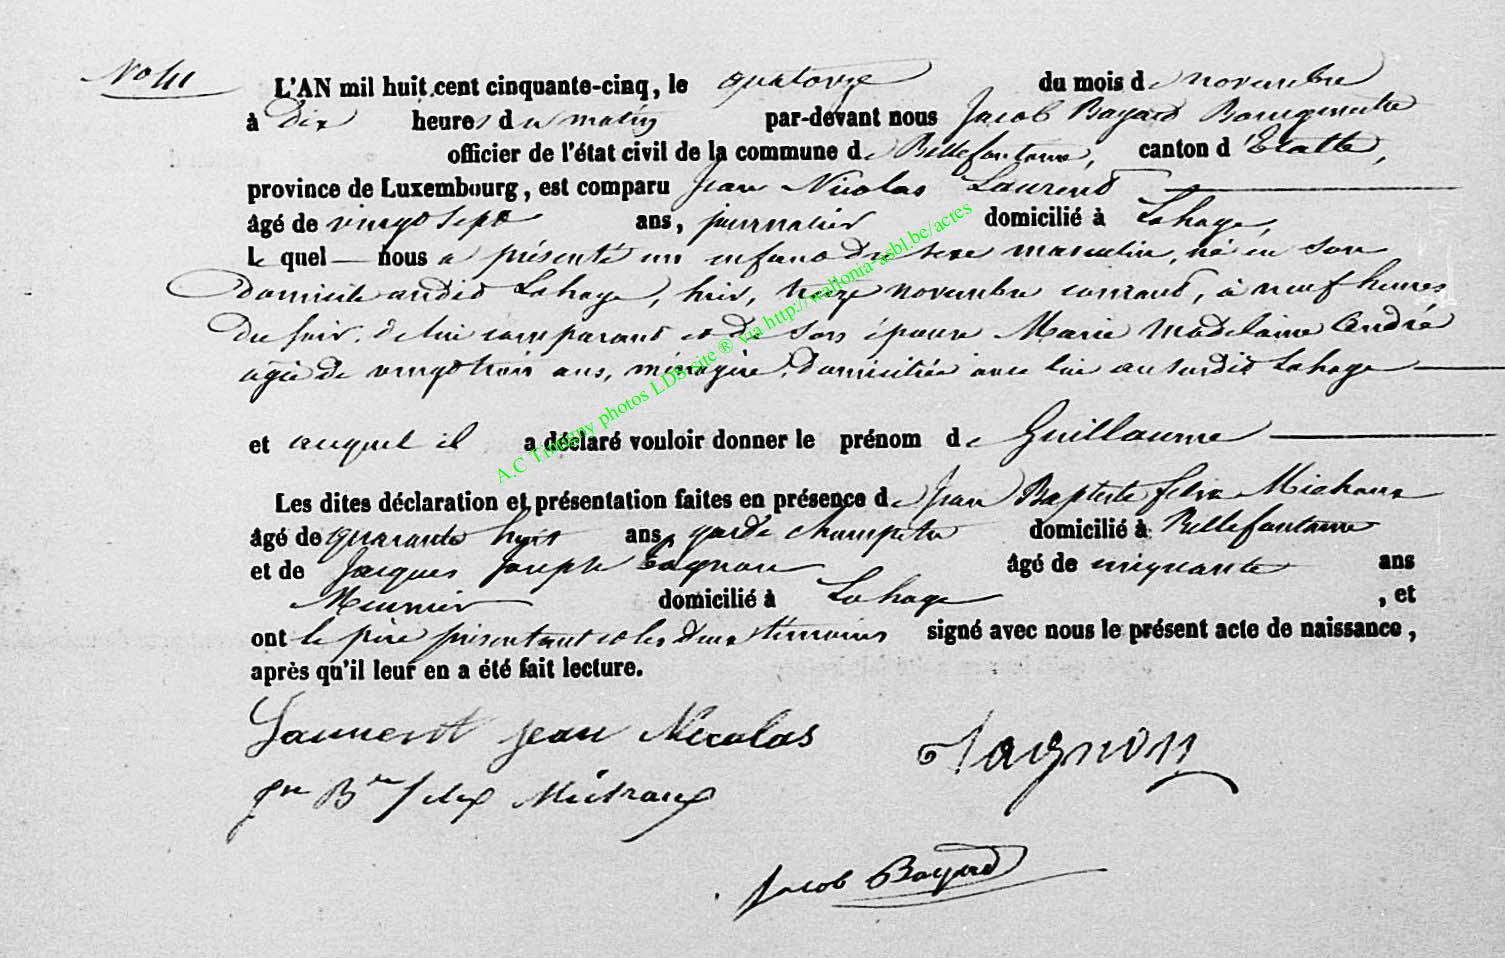 No 41
L'AN mil huit cent cinquante-cinq, le quatorze du mois de novembre
à Dix heures du matin par-devant nous Jacob Bayard Bourgmestre
officier de l'état civil de la commune de Bellefontaine, canton d'Etalle,
province de Luxembourg, est comparu Jean Nicolas Laurent
âgé de vingt sept ans, journalier domicilié à Lahage,
Le quel nous a présenté un enfant du sexe masculin, né en son
domicile audit Lahage, hier, treize novembre courant, à neuf heures
du soir, de lui comparant et de son épouse Marie Madelaine André
agée de vingt trois ans, ménagère, domiciliée avec lui au susdit Lahage
et auquel il a déclaré vouloir donner le prénom de Guillaume
Les dites déclaration et présentation faites en présence de Jean Baptiste felix Michaux
âgé de quarante huit ans, garde champetre domicilié à Bellefontaine
et de Jacques Joseph Tagnon âgé de cinquante ans
Meunier domicilié à Lahage, et
ont le père présentant et les deux témoins signé avec nous le présent acte de naissance,
après qu'il leur en a été fait lecture.
Laurent jean Nicolas
Tagnon
jn Bte felix Michaux
Jacob Bayard
A.C Tintigny photos LDS-site ® via http://wallonia-asbl.be/actes